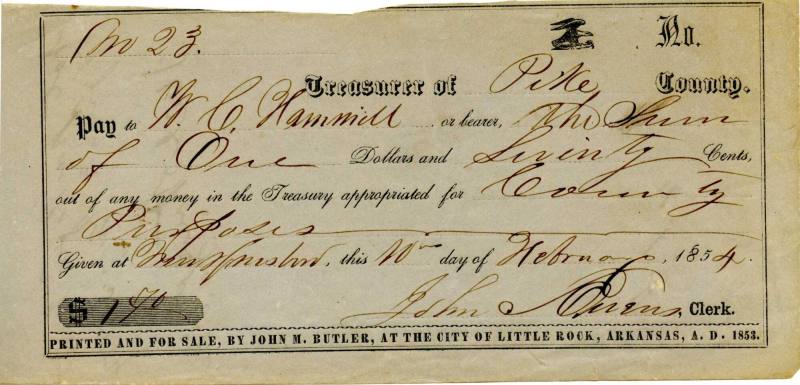 No 23. No.
Treasurer of Pike County.
Pay to W. C. Hammill or bearer, the Sum
of One Dollars and Seventy Cents,
out of any money in the Treasury appropriated for County
Purposes
Given at Murfreesboro, this 10th day of February 1854.
$ 1.70 John Owens, Clerk.
PRINTED AND FOR SALE, BY JOHN M. BUTLER, AT THE CITY OF LITTLE ROCK, ARKANSAS, A. D. 1853.